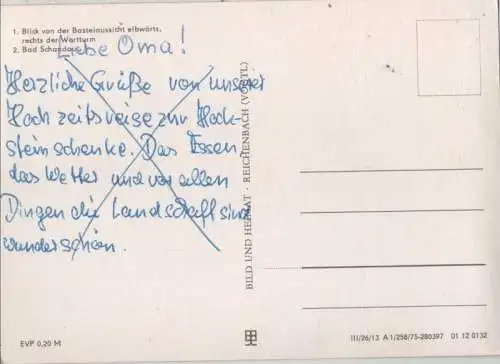 1. Blick von der Basteiaussicht elbwärts,
rechts der Wartturm
2. Bad Schandau
Liebe Oma!
Herzliche Grüße von unserer
Hochzeitsreise zur Hock-
steinschenke. Das Essen,
das Wetter und vor allen
Dingen die Landschaft sind
wunderschön.
BILD UND HEIMAT · REICHENBACH (VOGTL)
EVP 0,20 M
III/26/13 A 1/258/75-280397 01 12 0132